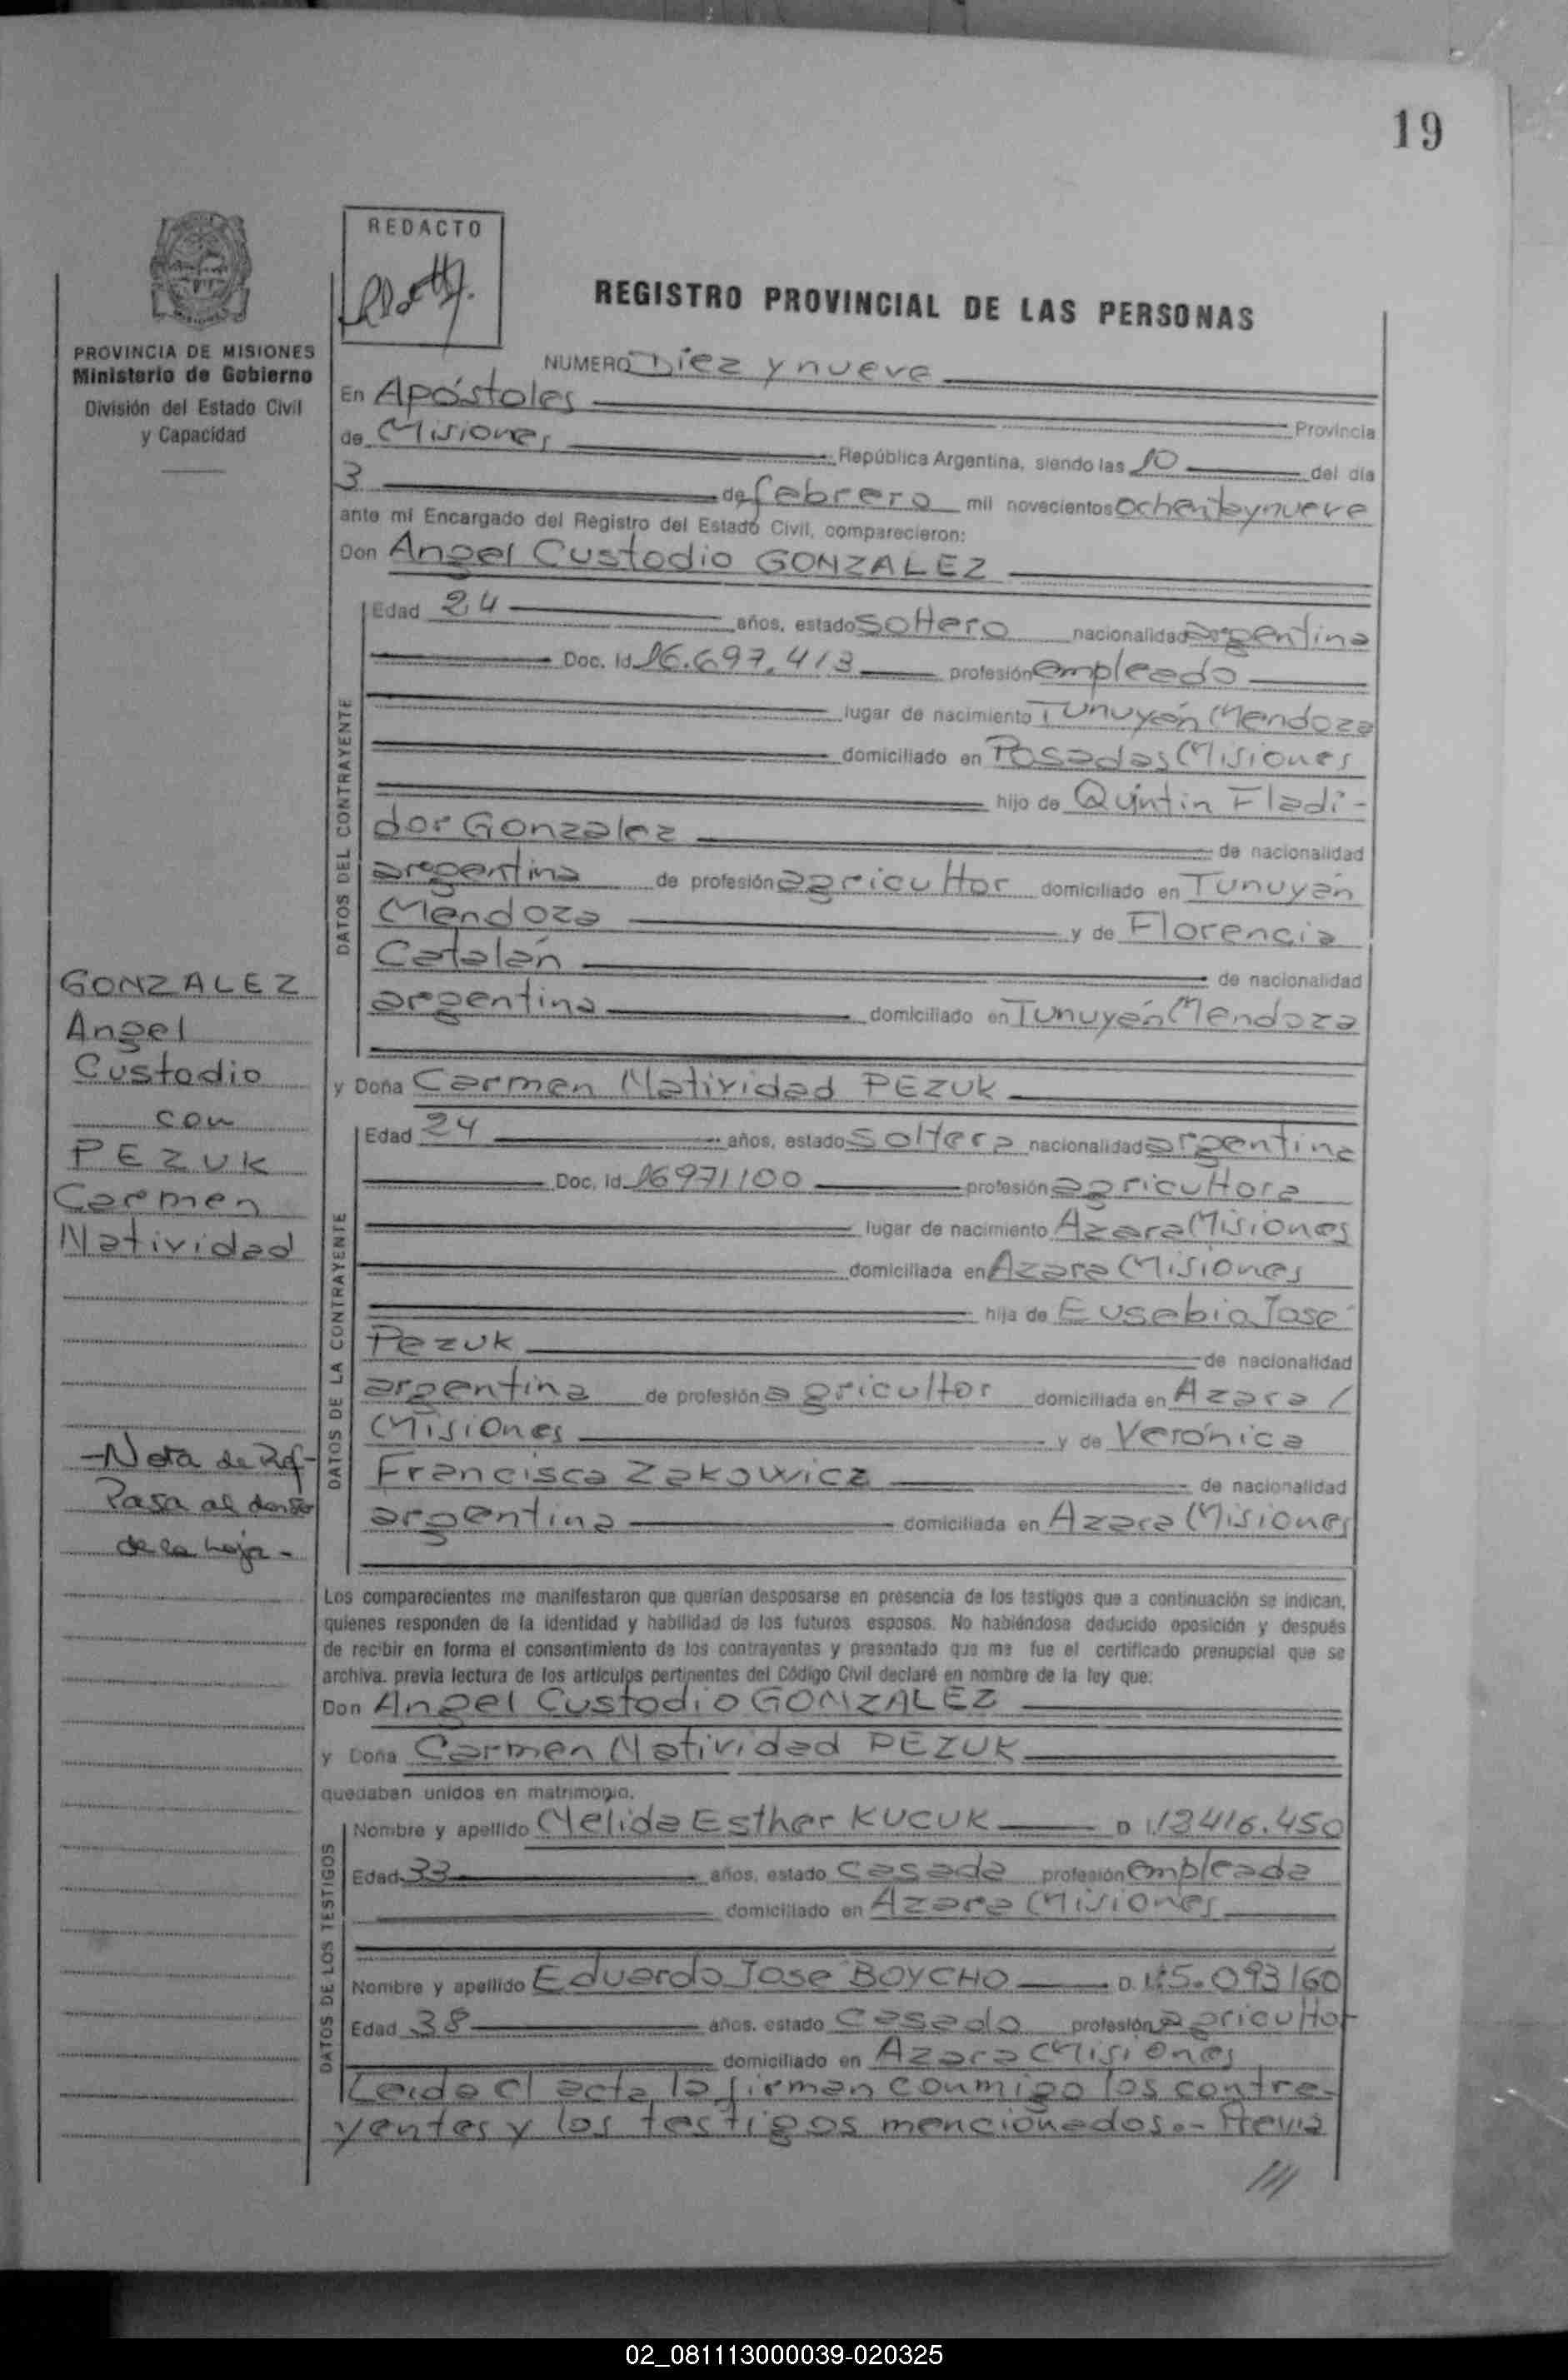 19
REDACTO
REGISTRO PROVINCIAL DE LAS PERSONAS
PROVINCIA DE MISIONES
Ministerio de Gobierno
División del Estado Civil
y Capacidad
NUMERO Diez y nueve
En Apóstoles Provincia
de Misiones República Argentina, siendo las 10 del día
3 de febrero mil novecientos ochentaynueve
ante mi Encargado del Registro del Estado Civil, comparecieron:
Don Angel Custodio GONZALEZ
DATOS DEL CONTRAYENTE
Edad 24 años, estado soltero nacionalidad argentina
Doc. Id. 16.697.413 profesión empleado
lugar de nacimiento Tunuyán Mendoza
domiciliado en Posadas Misiones
hijo de Quintin Eladi-
dor Gonzalez de nacionalidad
argentina de profesión agricultor domiciliado en Tunuyán
Mendoza y de Florencia
Catalán de nacionalidad
argentina domiciliado en Tunuyán Mendoza
GONZALEZ
Angel
Custodio
con
PEZUK
Carmen
Natividad
-Nota de Ref-
Pasa al dorso
de la hoja-
y Doña Carmen Natividad PEZUK
DATOS DE LA CONTRAYENTE
Edad 24 años, estado soltera nacionalidad argentina
Doc. Id. 16971100 profesión agricultora
lugar de nacimiento Azara Misiones
domiciliada en Azara Misiones
hija de Eusebio José
Pezuk de nacionalidad
argentina de profesión agricultor domiciliada en Azara /
Misiones y de Verónica
Francisca Zakowicz de nacionalidad
argentina domiciliada en Azara Misiones
Los comparecientes me manifestaron que querían desposarse en presencia de los testigos que a continuación se indican,
quienes responden de la identidad y habilidad de los futuros esposos. No habiéndose deducido oposición y después
de recibir en forma el consentimiento de los contrayentes y presentado que me fue el certificado prenupcial que se
archiva. previa lectura de los artículos pertinentes del Código Civil declaré en nombre de la ley que:
Don Angel Custodio GONZALEZ
y Doña Carmen Natividad PEZUK
quedaban unidos en matrimonio.
DATOS DE LOS TESTIGOS
Nombre y apellido Nelida Esther KUCUK D.I. 13416.450
Edad 33 años, estado casada profesión empleada
domiciliado en Azara Misiones
Nombre y apellido Eduardo José BOYCHO D.I. 5.093160
Edad 38 años, estado casado profesión agricultor
domiciliado en Azara Misiones
Leída el acta la firman conmigo los contra-
yentes y los testigos mencionados.- Previa
///
02_081113000039-020325